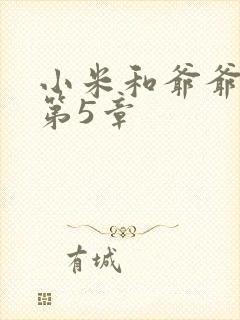 小米和爷爷
第5章
有城